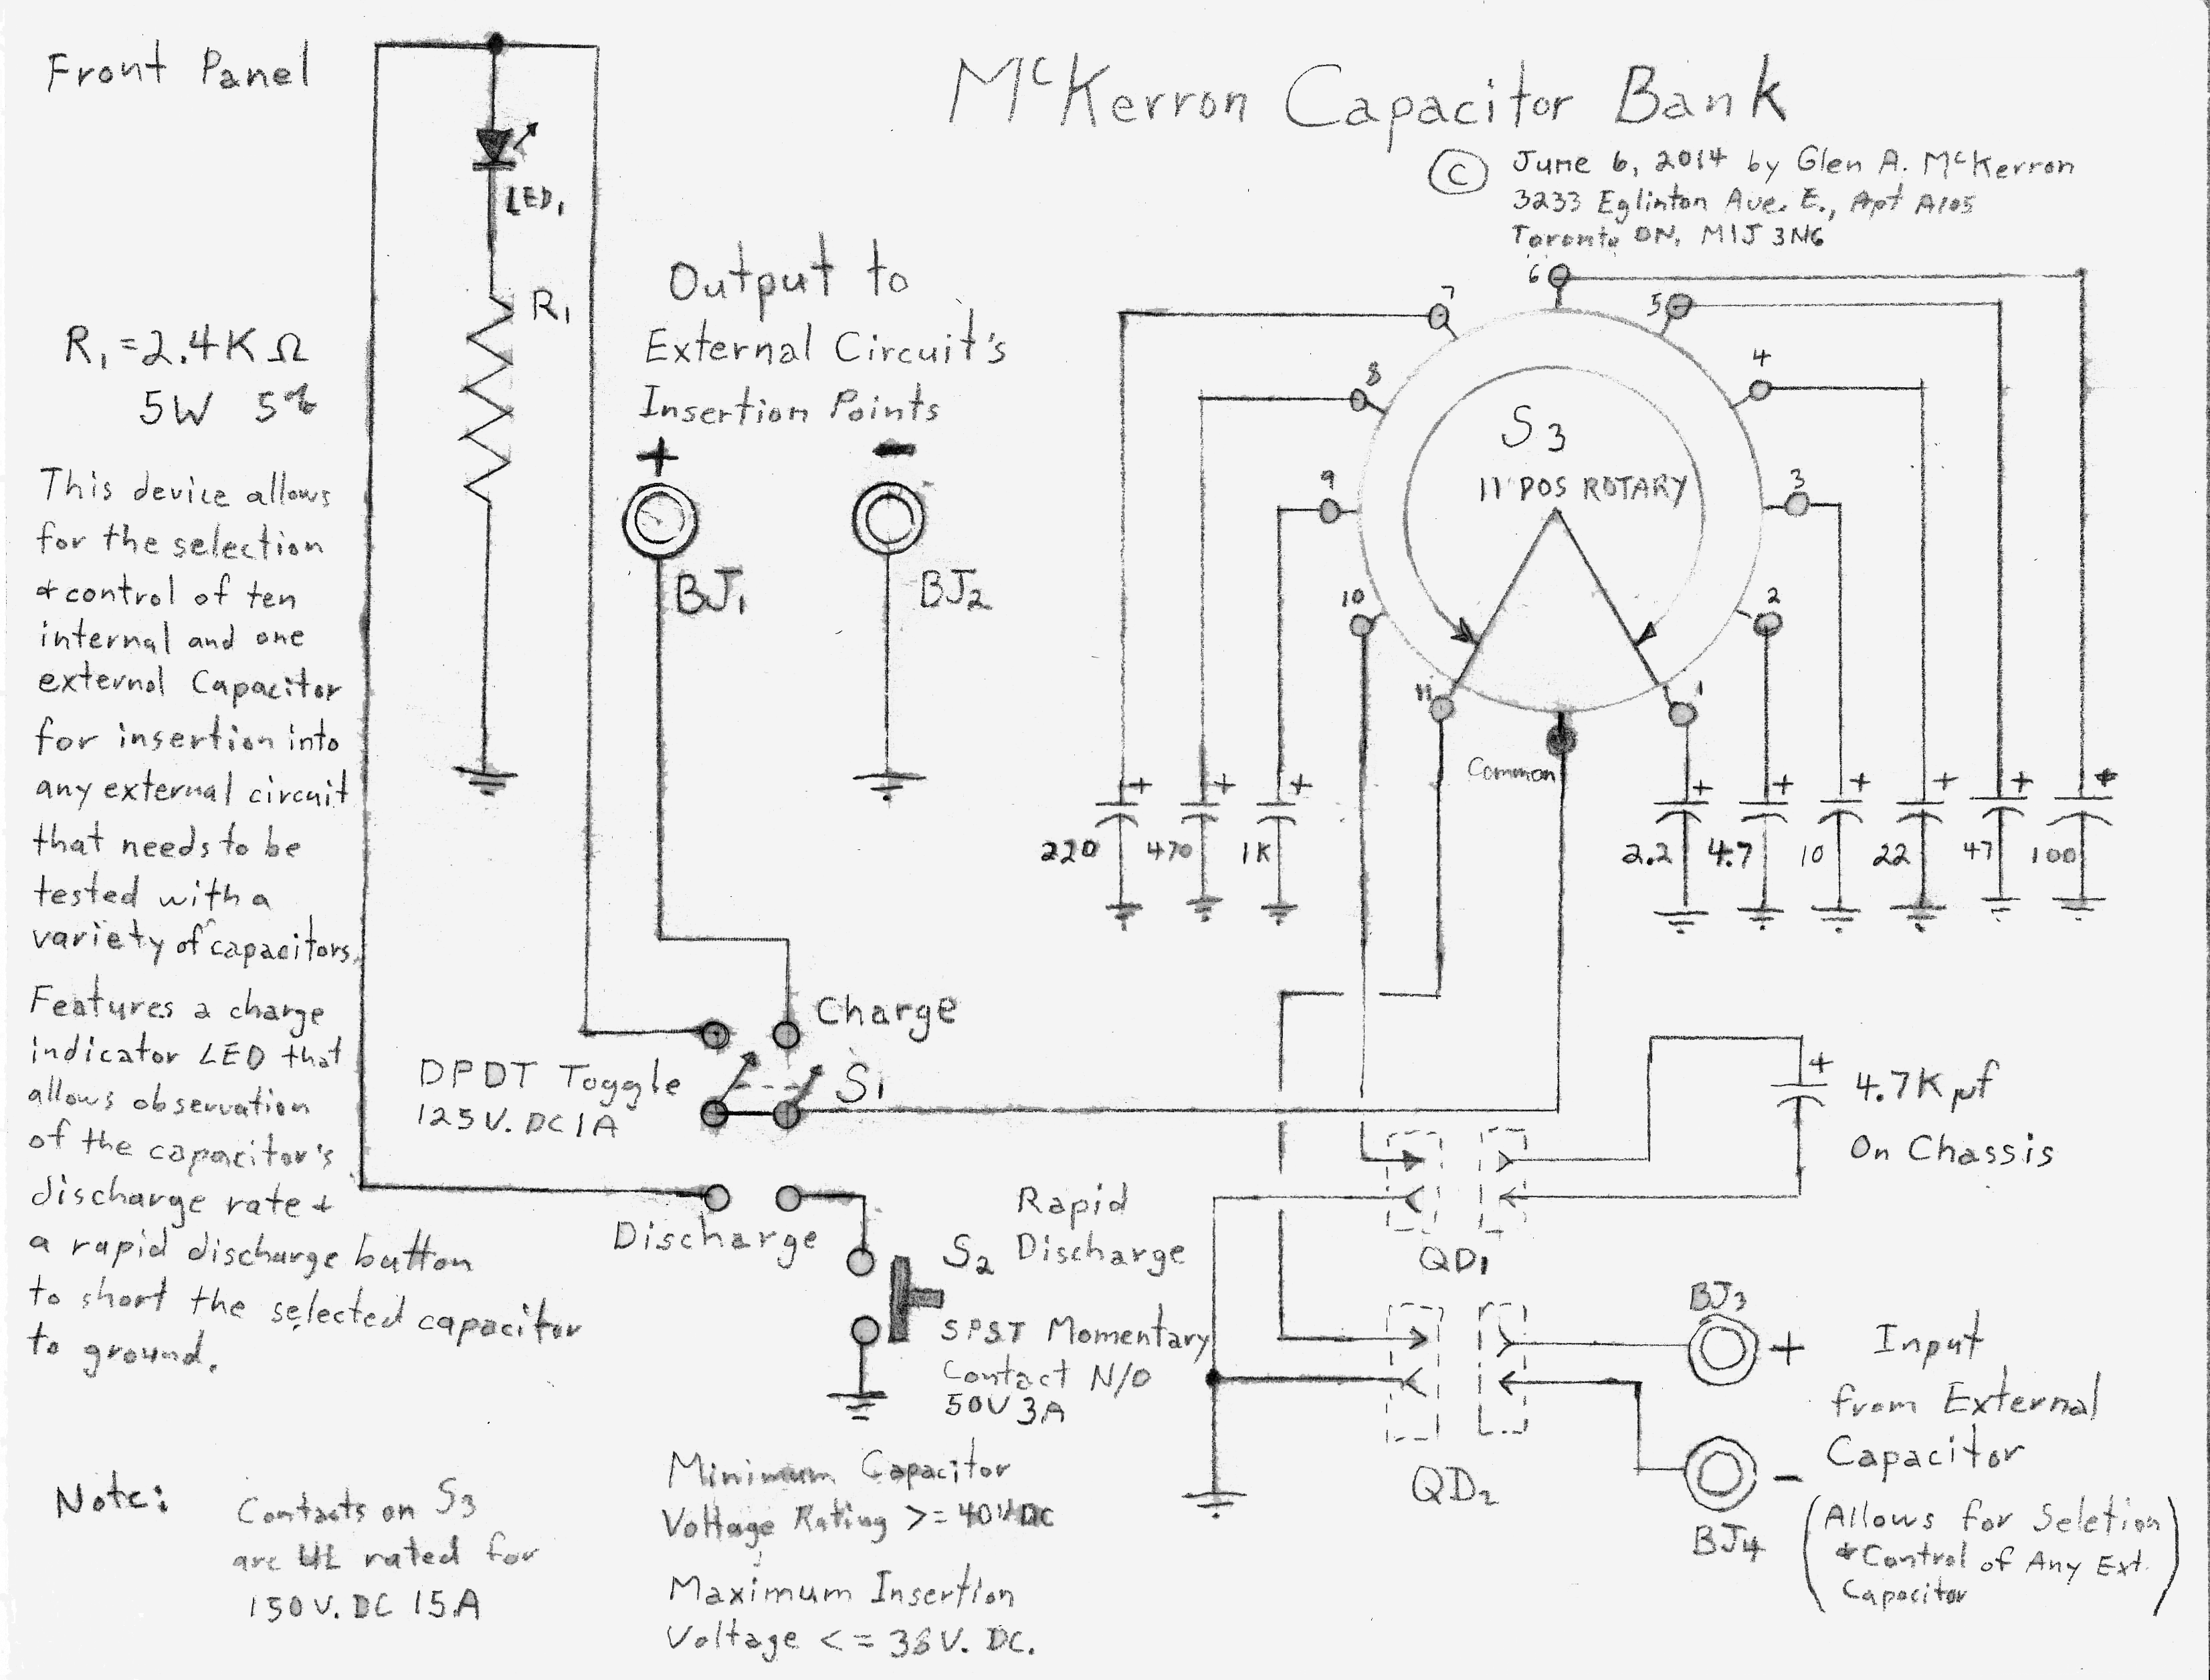 Front Panel
McKerron Capacitor Bank
© June 6, 2014 by Glen A. McKerron
3233 Eglinton Ave. E., Apt A105
Toronto ON, M1J 3N6
LED1
R1
R1 = 2.4K Ω
5W 5%
Output to
External Circuit's
Insertion Points
+ -
BJ1 BJ2
This device allows
for the selection
& control of ten
internal and one
external Capacitor
for insertion into
any external circuit
that needs to be
tested with a
variety of capacitors.
Features a charge
indicator LED that
allows observation
of the capacitor's
discharge rate &
a rapid discharge button
to short the selected capacitor
to ground.
6
7 5
8 4
S3
11 POS ROTARY
9 3
10 2
11 1
Common
+ + + + + + + + +
220 470 1K 2.2 4.7 10 22 47 100
Charge
DPDT Toggle S1
125V. DC 1A
Discharge
+
4.7K µf
On Chassis
QD1
S2 Rapid
Discharge
SPST Momentary
Contact N/O
50V 3A
BJ3
+
Input
from External
Capacitor
-
BJ4
QD2
(Allows for Seletion
& Control of Any Ext.
Capacitor)
Note: Contacts on S3
are UL rated for
150V. DC 15A
Minimum Capacitor
Voltage Rating >= 40VDC
Maximum Insertion
Voltage <= 36V. DC.